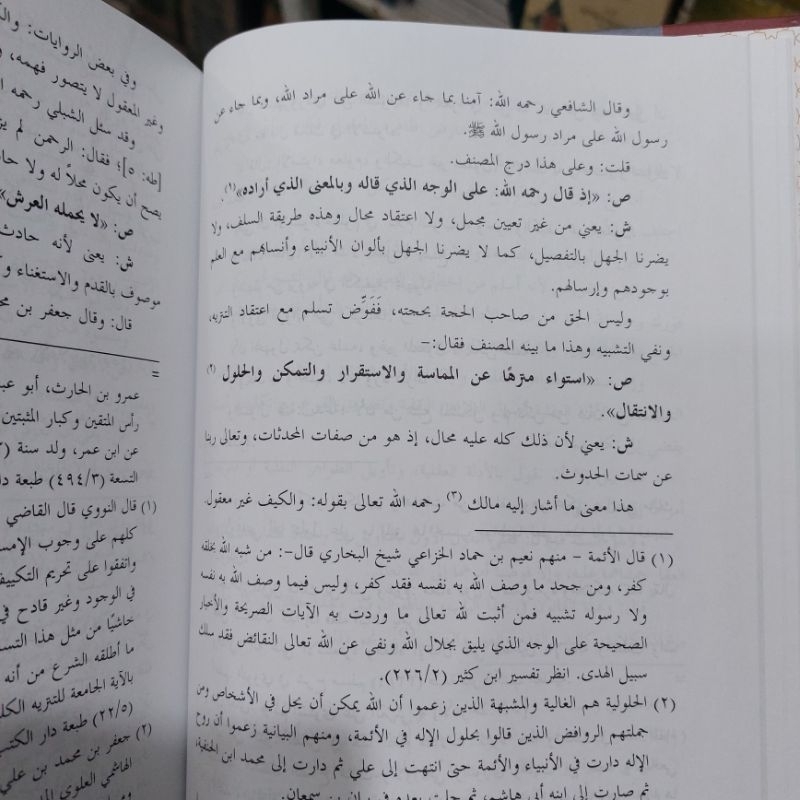 وقال الشافعي رحمه الله: آمنا بما جاء عن الله على مراد الله، وبما جاء عن
رسول الله على مراد رسول الله ﷺ.
قلت: وعلى هذا درج المصنف.
ص: «إذ قال رحمه الله: على الوجه الذي قاله وبالمعنى الذي أراده»(١).
ش: يعني من غير تعيين مجمل، ولا اعتقاد محال وهذه طريقة السلف، ولا
يضرنا الجهل بالتفصيل، كما لا يضرنا الجهل بألوان الأنبياء وأنسابهم مع العلم
بوجودهم وإرسالهم.
وليس الحق من صاحب الحجة بحجته، فَفَوِّض تسلم مع اعتقاد التنزيه،
ونفي التشبيه وهذا ما بينه المصنف فقال:-
ص: «استواء منزهًا عن المماسة والاستقرار والتمكن والحلول (٢)
والانتقال».
ش: يعني لأن ذلك كله عليه محال، إذ هو من صفات المحدثات، وتعالى ربنا
عن سمات الحدوث.
هذا معنى ما أشار إليه مالك (٣) رحمه الله تعالى بقوله: والكيف غير معقول.
(١) قال الأئمة - منهم نعيم بن حماد الخزاعي شيخ البخاري قال-: من شبه الله بخلقه
كفر، ومن جحد ما وصف الله به نفسه فقد كفر، وليس فيما وصف الله به نفسه
ولا رسوله تشبيه فمن أثبت لله تعالى ما وردت به الآيات الصريحة والأخبار
الصحيحة على الوجه الذي يليق بجلال الله ونفى عن الله تعالى النقائض فقد سلك
سبيل الهدى. انظر تفسير ابن كثير (٢٢٦/٢).
(٢) الحلولية هم الغالية والمشبهة الذين زعموا أن الله يمكن أن يحل في الأشخاص ومن
جملتهم الروافض الذين قالوا بحلول الإله في الأئمة، ومنهم البيانية زعموا أن روح
الإله دارت في الأنبياء والأئمة حتى انتهت إلى علي ثم دارت إلى محمد ابن الحنفية،
ثم صارت إلى ابنه أبي هاشم، ثم حلت بعده في بيان بن سمعان.
وفي بعض الروايات:
وغير المعقول لا يتصور فهمه،
وقد سئل الشبلي رحمه
[طه: ٥]؛ فقال: الرحمن لم
يصح أن يكون محلاً له ولا
ص: «لا يحمله العرش»
ش: يعني لأنه حادث
موصوف بالقدم والاستغناء
قال: وقال جعفر بن
=
عمرو بن الحارث، أبو
رأس المتقين وكبار المثبتين
عن ابن عمر، ولد سنة
التسعة (٤٩٤/٣) طبعة
(١) قال النووي قال القاضي
كلهم على وجوب
واتفقوا على تحريم التكييف
في الوجود وغير قادح في
خاشيًا من مثل هذا
ما أطلقه الشرع من أنه
بالآية الجامعة للتنزيه
(٢٢/٥) طبعة دار
(٢) جعفر بن محمد بن علي
الهاشمي العلوي